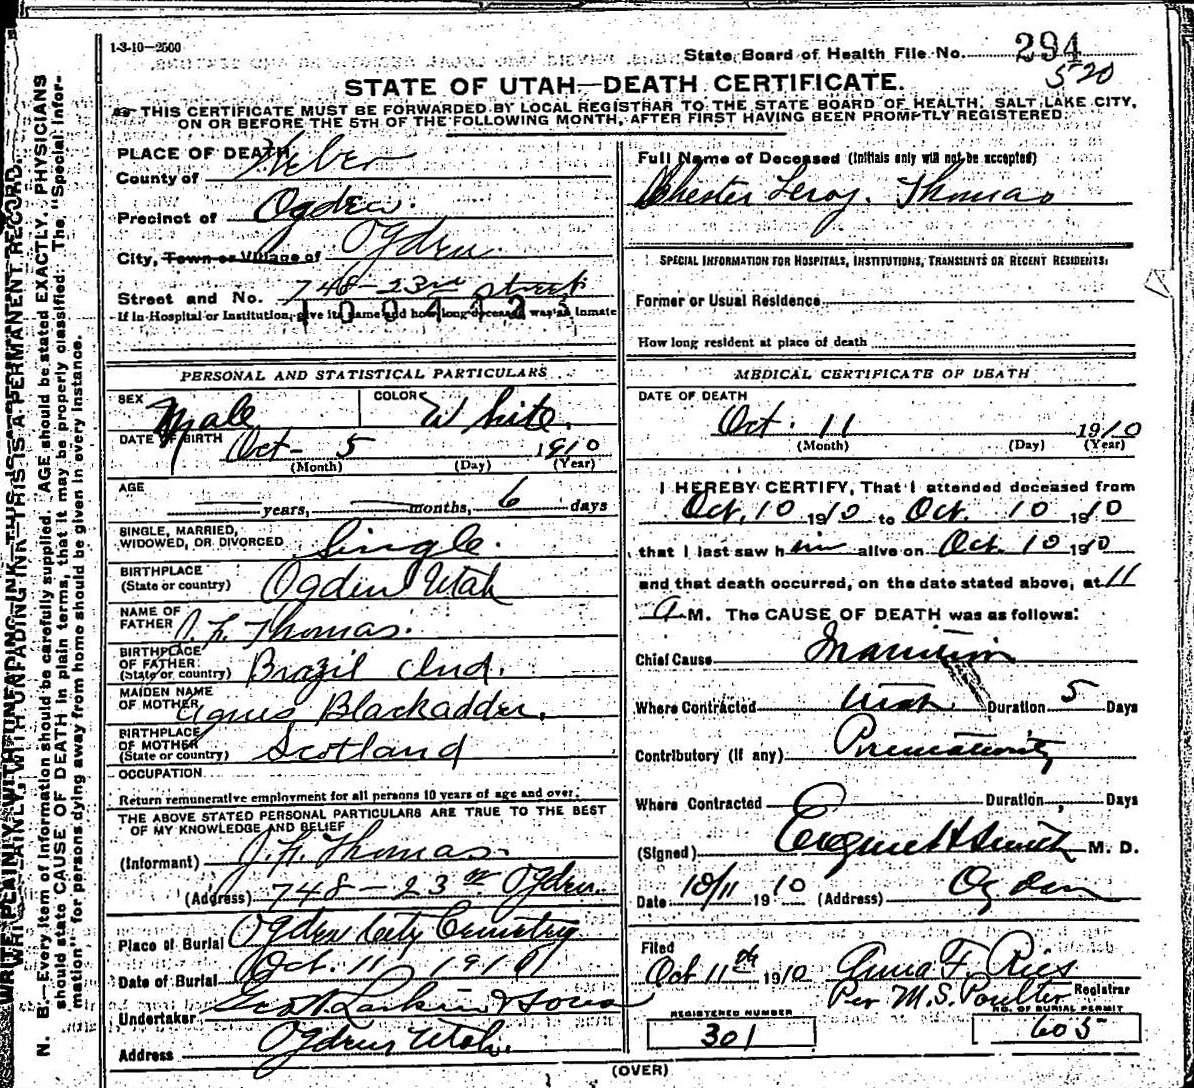 1-3-10—2500
State Board of Health File No. 294
520
STATE OF UTAH—DEATH CERTIFICATE.
THIS CERTIFICATE MUST BE FORWARDED BY LOCAL REGISTRAR TO THE STATE BOARD OF HEALTH, SALT LAKE CITY,
ON OR BEFORE THE 5TH OF THE FOLLOWING MONTH, AFTER FIRST HAVING BEEN PROMPTLY REGISTERED.
WRITE PLAINLY, WITH UNFADING INK—THIS IS A PERMANENT RECORD.
N. B.—Every item of information should be carefully supplied. AGE should be stated EXACTLY. PHYSICIANS
should state CAUSE OF DEATH in plain terms, that it may be properly classified. The "Special Infor-
mation" for persons dying away from home should be given in every instance.
PLACE OF DEATH
County of Weber
Precinct of Ogden.
City, Town or Village of Ogden
Street and No. 748-23rd street
If in Hospital or Institution, give its name and how long deceased was an inmate
1004325
PERSONAL AND STATISTICAL PARTICULARS
SEX Male COLOR White.
DATE OF BIRTH Oct- 5 1910
(Month) (Day) (Year)
AGE
years, months, 6 days
SINGLE, MARRIED,
WIDOWED, OR DIVORCED Single.
BIRTHPLACE
(State or country) Ogden Utah
NAME OF
FATHER J. L. Thomas.
BIRTHPLACE
OF FATHER
(State or country) Brazil Ind.
MAIDEN NAME
OF MOTHER Agnes Blackadder.
BIRTHPLACE
OF MOTHER
(State or country) Scotland
OCCUPATION
Return remunerative employment for all persons 10 years of age and over.
THE ABOVE STATED PERSONAL PARTICULARS ARE TRUE TO THE BEST
OF MY KNOWLEDGE AND BELIEF
(Informant) J. L. Thomas.
(Address) 748-23rd Ogden
Place of Burial Ogden City Cemetery
Date of Burial Oct. 11 1910
Undertaker Larkin & Sons
Address Ogden Utah.
Full Name of Deceased (Initials only will not be accepted)
Chester Leroy. Thomas
SPECIAL INFORMATION FOR HOSPITALS, INSTITUTIONS, TRANSIENTS OR RECENT RESIDENTS:
Former or Usual Residence
How long resident at place of death
MEDICAL CERTIFICATE OF DEATH
DATE OF DEATH
Oct. 11 1910
(Month) (Day) (Year)
I HEREBY CERTIFY, That I attended deceased from
Oct. 10 1910 to Oct. 10 1910
that I last saw him alive on Oct. 10 1910
and that death occurred, on the date stated above, at 11
A M. The CAUSE OF DEATH was as follows:
Chief Cause Inanition
Where Contracted Utah Duration 5 Days
Contributory (if any) Prematurity
Where Contracted Duration, Days
(Signed) Eugene H Smith M. D.
Date 10/11 1910 (Address) Ogden
Filed
Oct 11th 1910 Anna F. Ries
Per M.S. Poulter Registrar
REGISTERED NUMBER
301
NO. OF BURIAL PERMIT
605
(OVER)